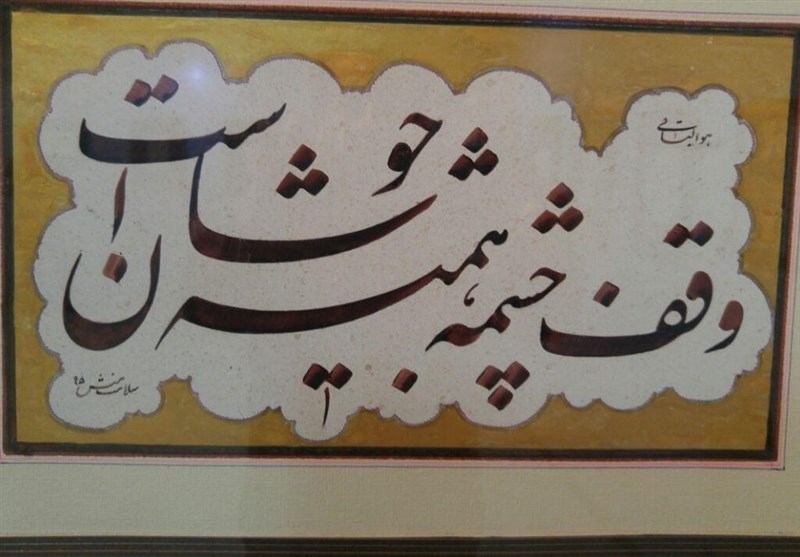 هوالباقی
وقف چشمه همیشه جوشان است
سلامت منش ۹۵